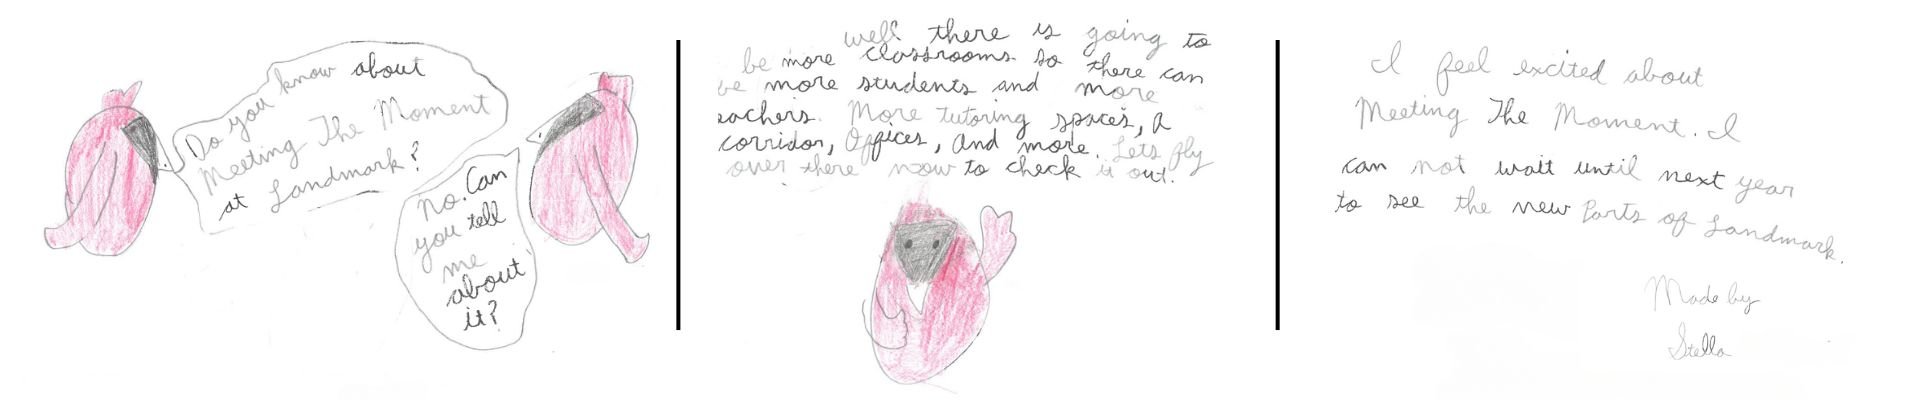 Do you know about
Meeting The Moment
at Landmark?
No. Can
you tell
me
about
it?
well there is going to
be more classrooms so there can
be more students and more
eachers. More tutoring spaces, A
corridor, Offices, And more. Lets fly
over there now to check it out.
I feel excited about
Meeting The Moment. I
can not wait until next year
to see the new Parts of Landmark.
Made by
Stella